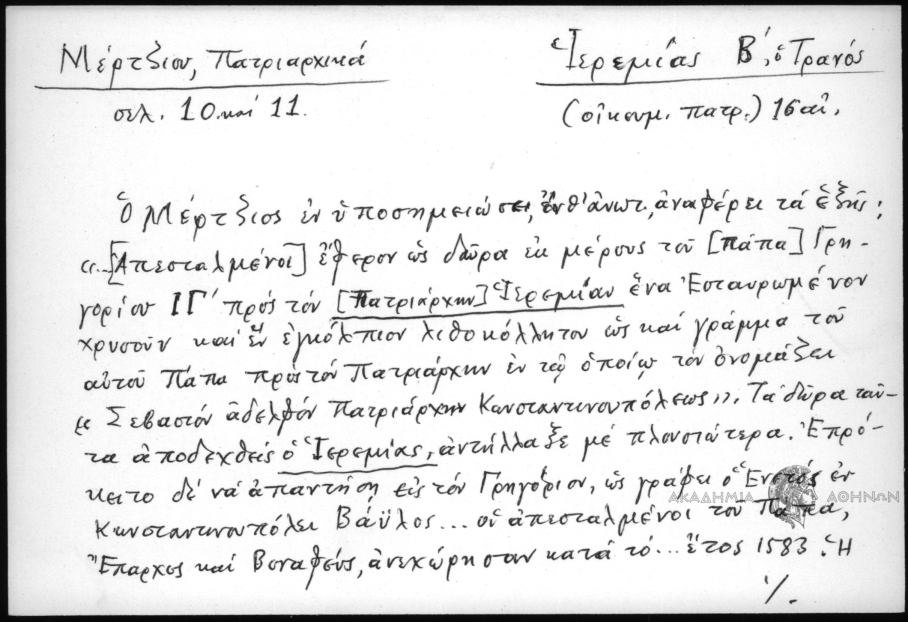 Μέρτζιου, Πατριαρχικά
σελ. 10 καί 11.
Ἱερεμίας Β΄, ὁ Τρανός
(οἰκουμ. πατρ.) 16 αἰ.
Ὁ Μέρτζιος ἐν ὑποσημειώσει, ἔνθ' ἀνωτ., ἀναφέρει τά ἑξῆς:
«...[Ἀπεσταλμένοι] ἔφερον ὡς δῶρα ἐκ μέρους τοῦ [πάπα] Γρη-
γορίου ΙΓ΄ πρός τόν [Πατριάρχην] Ἱερεμίαν ἕνα Ἐσταυρωμένον
χρυσοῦν καί ἕν ἐγκόλπιον λιθοκόλλητον ὡς καί γράμμα τοῦ
αὐτοῦ Πάπα πρός τόν Πατριάρχην ἐν τῷ ὁποίῳ τόν ὀνομάζει
« Σεβαστόν ἀδελφόν Πατριάρχην Κωνσταντινουπόλεως». Τά δῶρα ταῦ-
τα ἀποδεχθείς ὁ Ἱερεμίας, ἀντήλλαξε μέ πλουσιώτερα. Ἐπρό-
κειτο δέ νά ἀπαντήσῃ εἰς τόν Γρηγόριον, ὡς γράφει ὁ Ἐνετός ἐν
Κωνσταντινουπόλει Βάϋλος... οἱ ἀπεσταλμένοι τοῦ Πάπα,
Ἔπαρχος καί Βοναφεύς, ἀνεχώρησαν κατά τό... ἔτος 1583. Ἡ
./.
ΑΚΑΔΗΜΙΑ ΑΘΗΝΩΝ